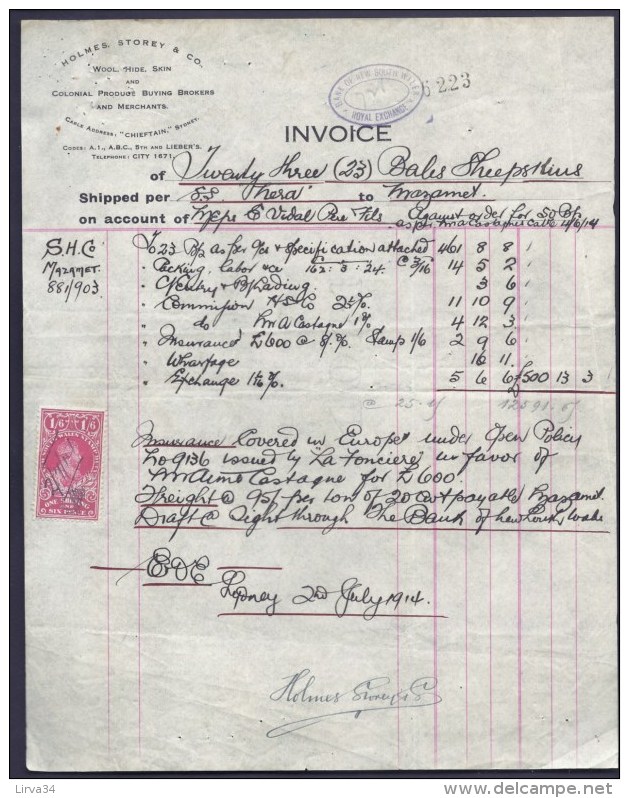 HOLMES, STOREY & CO.
WOOL, HIDE, SKIN
AND
COLONIAL PRODUCE BUYING BROKERS
AND MERCHANTS.
CABLE ADDRESS: "CHIEFTAIN," SYDNEY.
CODES: A.1., A.B.C., 5TH AND LIEBER'S.
TELEPHONE: CITY 1671.
BANK OF NEW SOUTH WALES
ROYAL EXCHANGE
6223
INVOICE
of Twenty three (23) Bales Sheepskins
Shipped per S.S. 'Hera' to Mazamet.
on account of E Vidal Pere & Fils Against order for 50
as per Mr A Castagne cable 11/6/14
S.H.Co
MAZAMET.
881/903
To 23 as per & specification attached 461 8 8
" Packing, labor 162:3:24. @ 14 5 2
" Entry & 3 6
" Commission 11 10 9
" do Mr A Castagne 1% 4 12 3
" Insurance £600 @ Stamp 1/6 2 9 6
" Wharfage 16 11.
" Exchange 5 6 6 £500 13 3
1/6 1/6
ONE SHILLING
SIX PENCE
Insurance Covered in Europe under Open Policy
No 9136 issued by "La Fonciere" in favor of
Mr Aimo Castagne for £600.
Freight @ per ton of 20 Cwt payable Mazamet.
Draft @ Sight through The Bank of New South Wales
E&OE
Sydney 2nd July 1914.
Holmes Storey & Co
Lirva34
delcampe.net